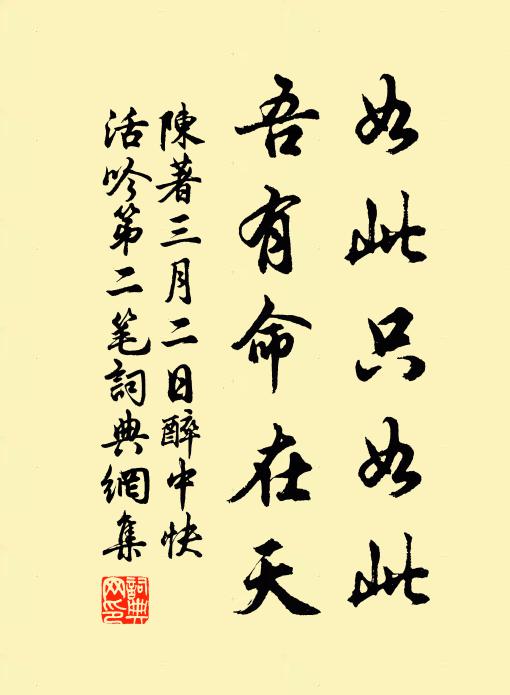 如此只如此
吾有命在天
陳著三月二日醉中快
活吟第二筆詞典網集
詞典网印